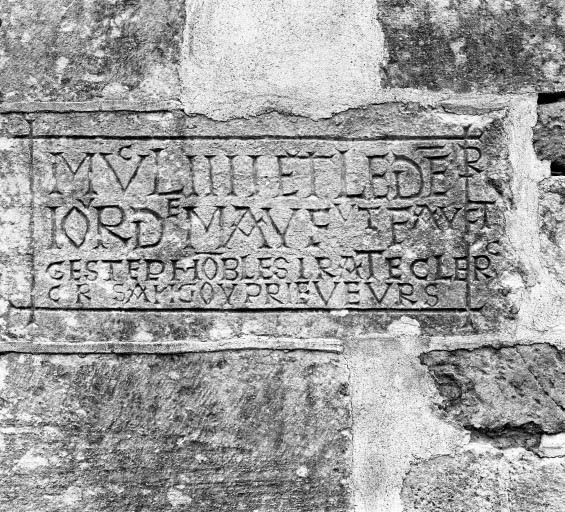 MVᶜLIIII ET LE DER
IOᵛRDᵉ MAY FVT FAVT
GESTEPHOBLESIRATECLER
CR SANGOVPRIEVEVRS